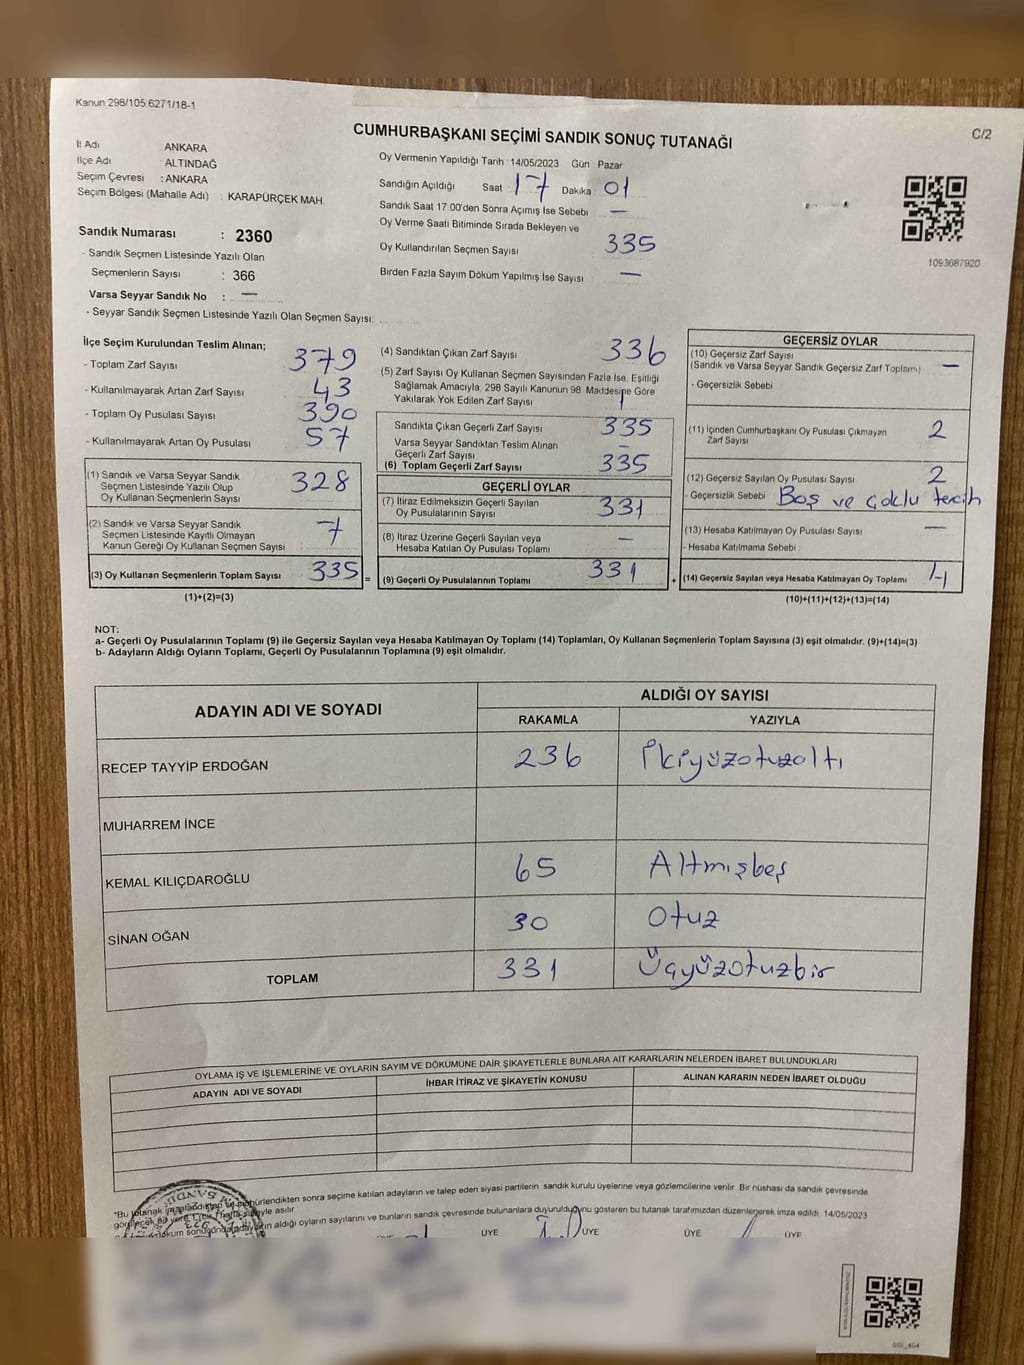 Kanun 298/105 6271/18-1
C/2
CUMHURBAŞKANI SEÇİMİ SANDIK SONUÇ TUTANAĞI
İl Adı : ANKARA
İlçe Adı : ALTINDAĞ
Seçim Çevresi : ANKARA
Seçim Bölgesi (Mahalle Adı) : KARAPÜRÇEK MAH.
Sandık Numarası : 2360
- Sandık Seçmen Listesinde Yazılı Olan
Seçmenlerin Sayısı : 366
Varsa Seyyar Sandık No : —
- Seyyar Sandık Seçmen Listesinde Yazılı Olan Seçmen Sayısı:
Oy Vermenin Yapıldığı Tarih : 14/05/2023 Gün : Pazar
Sandığın Açıldığı Saat : 17 Dakika : 01
Sandık Saat 17.00'den Sonra Açımış İse Sebebi —
Oy Verme Saati Bitiminde Sırada Bekleyen ve
Oy Kullandırılan Seçmen Sayısı 335
Birden Fazla Sayım Döküm Yapılmış İse Sayısı —
1093687920
İlçe Seçim Kurulundan Teslim Alınan;
- Toplam Zarf Sayısı 379
- Kullanılmayarak Artan Zarf Sayısı 43
- Toplam Oy Pusulası Sayısı 390
- Kullanılmayarak Artan Oy Pusulası 57
(1) Sandık ve Varsa Seyyar Sandık
Seçmen Listesinde Yazılı Olup
Oy Kullanan Seçmenlerin Sayısı 328
(2) Sandık ve Varsa Seyyar Sandık
Seçmen Listesinde Kayıtlı Olmayan
Kanun Gereği Oy Kullanan Seçmen Sayısı 7
(3) Oy Kullanan Seçmenlerin Toplam Sayısı 335 =
(1)+(2)=(3)
(4) Sandıktan Çıkan Zarf Sayısı 336
(5) Zarf Sayısı Oy Kullanan Seçmen Sayısından Fazla İse, Eşitliği
Sağlamak Amacıyla, 298 Sayılı Kanunun 98. Maddesine Göre
Yakılarak Yok Edilen Zarf Sayısı 1
Sandıkta Çıkan Geçerli Zarf Sayısı 335
Varsa Seyyar Sandıktan Teslim Alınan
Geçerli Zarf Sayısı –
(6) Toplam Geçerli Zarf Sayısı 335
GEÇERLİ OYLAR
(7) İtiraz Edilmeksizin Geçerli Sayılan
Oy Pusulalarının Sayısı 331
(8) İtiraz Üzerine Geçerli Sayılan veya
Hesaba Katılan Oy Pusulası Toplamı —
(9) Geçerli Oy Pusulalarının Toplamı 331 +
GEÇERSİZ OYLAR
(10) Geçersiz Zarf Sayısı
(Sandık ve Varsa Seyyar Sandık Geçersiz Zarf Toplamı) —
- Geçersizlik Sebebi
(11) İçinden Cumhurbaşkanı Oy Pusulası Çıkmayan
Zarf Sayısı 2
(12) Geçersiz Sayılan Oy Pusulası Sayısı 2
- Geçersizlik Sebebi Boş ve çoklu tercih
(13) Hesaba Katılmayan Oy Pusulası Sayısı —
- Hesaba Katılmama Sebebi
(14) Geçersiz Sayılan veya Hesaba Katılmayan Oy Toplamı 4
(10)+(11)+(12)+(13)=(14)
NOT:
a- Geçerli Oy Pusulalarının Toplamı (9) ile Geçersiz Sayılan veya Hesaba Katılmayan Oy Toplamı (14) Toplamları, Oy Kullanan Seçmenlerin Toplam Sayısına (3) eşit olmalıdır. (9)+(14)=(3)
b- Adayların Aldığı Oyların Toplamı, Geçerli Oy Pusulalarının Toplamına (9) eşit olmalıdır.
ADAYIN ADI VE SOYADI ALDIĞI OY SAYISI
RAKAMLA YAZIYLA
RECEP TAYYİP ERDOĞAN 236 İkiyüzotuzaltı
MUHARREM İNCE
KEMAL KILIÇDAROĞLU 65 Altmışbeş
SİNAN OĞAN 30 Otuz
TOPLAM 331 Üçyüzotuzbir
OYLAMA İŞ VE İŞLEMLERİNE VE OYLARIN SAYIM VE DÖKÜMÜNE DAİR ŞİKAYETLERLE BUNLARA AİT KARARLARIN NELERDEN İBARET BULUNDUKLARI
ADAYIN ADI VE SOYADI İHBAR İTİRAZ VE ŞİKAYETİN KONUSU ALINAN KARARIN NEDEN İBARET OLDUĞU
*Bu tutanak sonra seçime katılan adayların ve talep eden siyasi partilerin sandık kurulu üyelerine veya gözlemcilerine verilir. Bir nüshası da sandık çevresinde
asılır
aldığı oyların sayılarını ve bunların sandık çevresinde bulunanlara duyurulduğunu gösteren bu tutanak tarafımızdan düzenlenerek imza edildi. 14/05/2023
ÜYE ÜYE ÜYE ÜYE